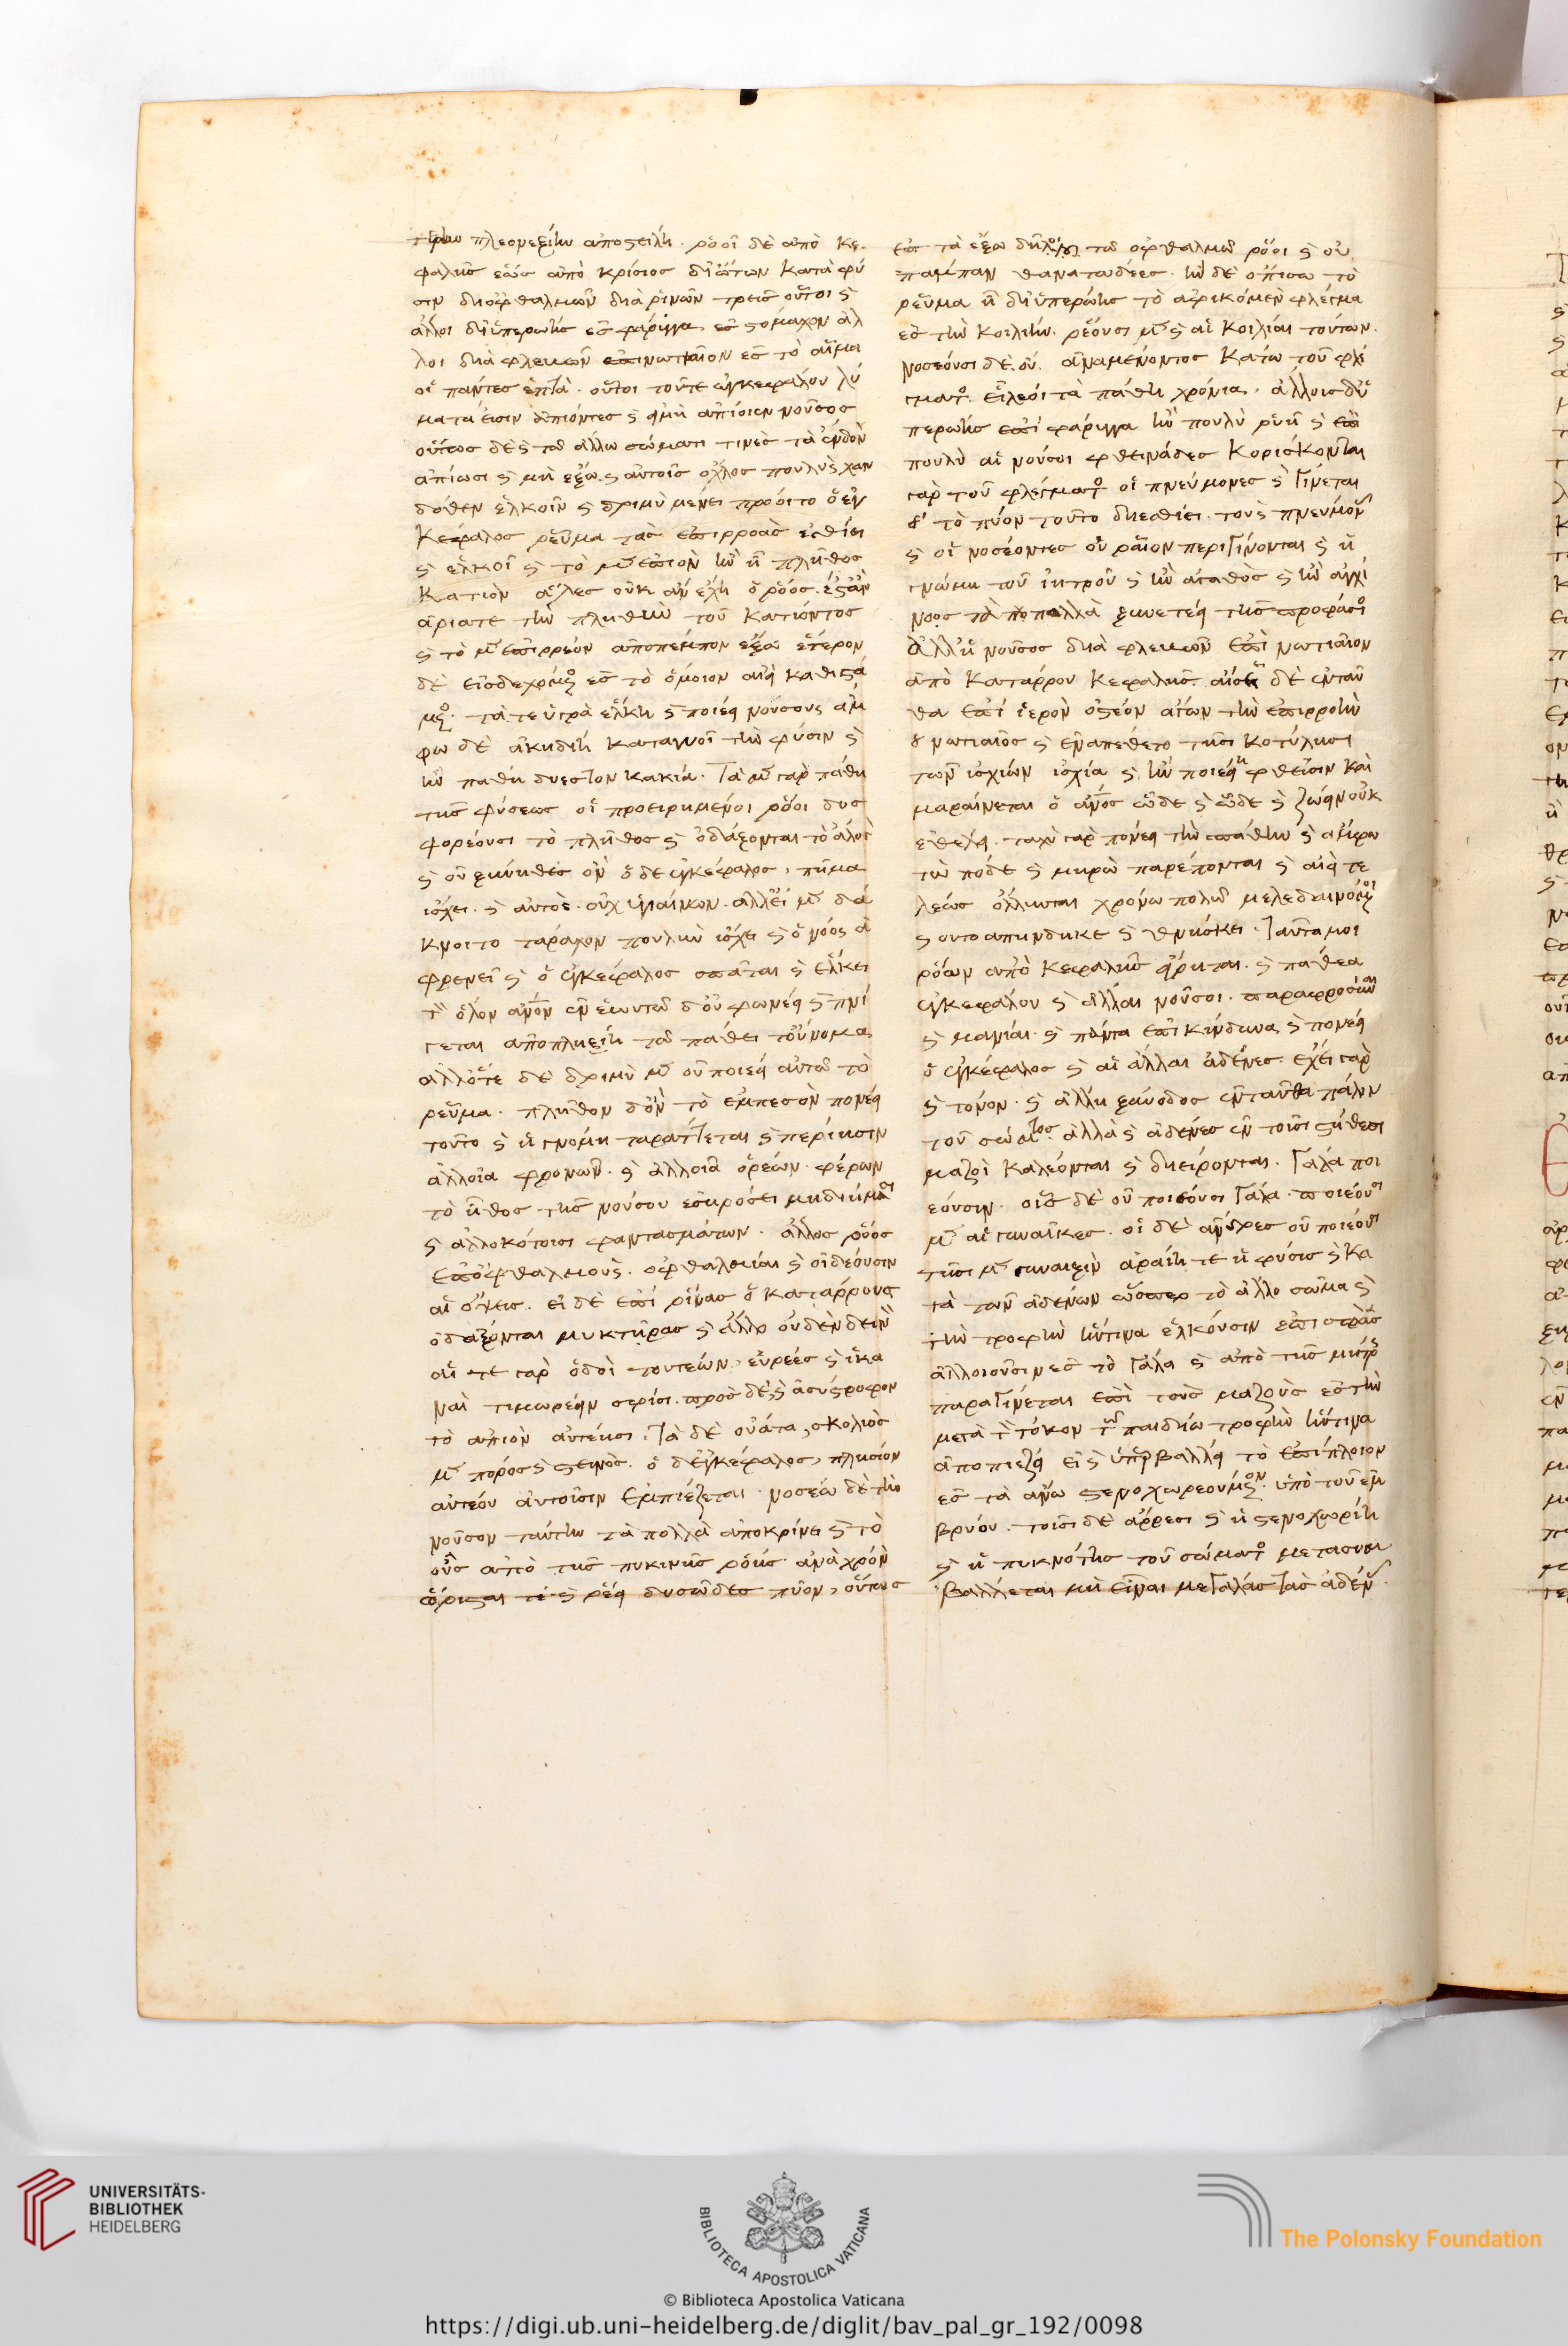 πλεονεξίην ἀποστείλη. ῥόοι δὲ ἀπὸ κε
φαλῆς ἕως ἀπὸ κρίσιος δι' ὤτων κατὰ φύ
σιν δι' ὀφθαλμῶν διὰ ῥινῶν τρεῖς οὗτοι ϗ
ἄλλοι δι' ὑπερώης ἐς φάριγγα. ἐς στόμαχον ἄλ
λοι διὰ φλεβῶν ἐπὶ νωτιαῖον ἐς τὸ αἷμα
οἱ πάντες ἑπτά. οὗτοι τοῦτε ἐγκεφάλου λύ
ματά εἰσιν ἀπιόντες ϗ ἢν μὴ ἀπίοιεν νοῦσος
οὕτως δὲ ϗ τῶ ἄλλω σώματι
ἀπίωσι ϗ μὴ ἔξω. ϗ αὐτοῖς ὄχλος πουλὺς
δοθεν ἑλκοῖ ϗ δριμὺ μένει προόιτο ὁ ἐγ
κέφαλος ῥεῦμα τὰς ἐπιρροὰς ἐσθίει
ϗ ἑλκοῖ ϗ τὸ μὲν ἐπιὸν ἢν ἦ πλῆθος
κατιὸν ἅλες οὐκ ἀνέχη ὁ ῥόος. ἔστ' ἂν
τὴν πληθὺν τοῦ κατιόντος
ϗ τὸ μὲν ἐπιρρέον ἀποπέμπον ἔξω ἕτερον
δὲ εἰσδεχόμενος ἐς τὸ ὅμοιον αἰεὶ καθιστά
μενος. τά τε ὑγρὰ ἕλκη ϗ ποιέει νούσους ἄμ
φω δὲ ἀκηδίη καταγνοῖ τὴν φύσιν ϗ
ἢν παθίη δυεστὸν κακία. τὰ μὲν γὰρ πάθη
τῆς φύσεως οἱ προειρημένοι ῥόοι δυς
φορέουσι τὸ πλῆθος ϗ ὀδάξονται τὸ ἄλογον
ϗ οὐ ξύνηθες ὂν ὁ δὲ ἐγκέφαλος, πῆμα
ἴσχει. ϗ αὐτὸς. οὐχ ὑγιαίνων. ἀλλ' εἰ μὲν δά
κνοιτο τάραχον πουλὺν ἴσχει ϗ ὁ νόος ἀ
φρενεῖ ϗ ὁ ἐγκέφαλος σπᾶται ϗ ἕλκει
τὸν ὅλον ἄνον ἐνεωυτῶ δ' οὐ φωνέει ϗ πνί
γεται ἀποπληξίη τῶ πάθει τοὔνομα
ἀλλότε δὲ δριμὺ μὲν οὐ ποιέει αὐτῶ τὸ
ῥεῦμα. πλῆθον δ' ὂν τὸ ἐμπεσὸν πονέει
τοῦτο ϗ ἡ γνώμη ταράττεται ϗ περίεισιν
ἀλλοῖα φρονῶν. ϗ ἀλλοῖα ὁρέων. φέρων
τὸ ἦθος τῆς νούσου σεσηρόσι μειδιήμασι
ϗ ἀλλοκότοισι φαντασμάτων. ἄλλος ῥόος
ἐπ' ὀφθαλμοὺς. ὀφθαλμίαι ϗ οἰδέουσιν
αἱ ὄψεις. εἰ δὲ ἐπὶ ῥῖνας ὁ κατάρρους
ὀδάξονται μυκτῆρας ϗ ἄλλο οὐδὲν δεινὸν
αἵ τε γὰρ ὁδοὶ τουτέων. εὐρεές ϗ ἱκα
ναὶ τιμωρέειν σφίσι. πρὸς δὲ ϗ ἀσύστροφον
τὸ ἀπιὸν αὐτέησι. τὰ δὲ οὔατα, σκολιὸς
μὲν πόρος ϗ στεινὸς. ὁ δ' ἐγκέφαλος, πλησίον
αὐτέου αὐτοῖσιν ἐμπιέζεται. νοσέων δὲ τὴν
νοῦσον ταύτην τὰ πολλὰ ἀποκρίνει ϗ τὸ
οὖς ἀπὸ τῆς πυκινῆς ῥόης. ἀνὰ χρόνον
ὥρισται τε ϗ ῥέει δυσῶδες πῦον, οὕτως
ἐπὶ τὰ ἔξω δῆλοι τῶ ὀφθαλμῶ ῥόοι ϗ οὐ
πάμπαν θανατώδεες. ἢν δὲ ὀπίσω τὸ
ῥεῦμα ἢ δι' ὑπερώης τὸ ἀφικόμενον φλέγμα
ἐς τὴν κοιλίην. ῥέουσι μὲν ϗ αἱ κοιλίαι τούτων.
νοσέουσι δὲ οὔ. ἀναμένοντος κάτω τοῦ φλέ
γματος εἰλεοί τὰ πάθη χρόνια. ἄλλοις δι' ὑ
περώης ἐπὶ φάριγγα ἢν πουλὺ ῥυῆ ϗ ἐπὶ
πουλὺ αἱ νοῦσοι φθινάδες κορίσκονται
γὰρ τοῦ φλέγματος οἱ πνεύμονες ϗ γίνεται
τὸ πύον τοῦτο διεσθίει. τοὺς πνεύμονας
ϗ οἱ νοσέοντες οὐ ῥᾶιον περιγίνονται ϗ ἡ
γνώμη τοῦ ἰητροῦ ϗ ἢν ἀγαθὸς ϗ ἢν ἀγχί
νοος τὰ πολλὰ ξυνετέη τῆς προφάσιος
ἄλλη νοῦσος διὰ φλεβῶν ἐπὶ νωτιαῖον
ἀπὸ κατάρρου κεφαλῆς. ἀίσει δὲ ἐνταῦ
θα ἐπὶ ἱερὸν ὀστέον ἄγων τὴν ἐπιρροὴν
ὁ νωτιαῖος ϗ ἐναπέθετο τῆσι κοτύλησι
τῶν ἰσχίων ἰσχία ϗ ἢν ποιέη φθίσιν καὶ
μαραίνεται ὁ ἄνος ὧδε ϗ ὧδε ϗ ζώειν οὐκ
ἐθέλει. ταχὺ γὰρ πονέει τὴν σπάθην ϗ ἄμφω
τὼ πόδε ϗ μηρὼ παρέπονται ϗ αἰεὶ τε
λέως ὄλλυνται χρόνω πολλῶ μελεδαινόμενοι
ϗ οὕτω ἀπηύδηκε ϗ θνήσκει. ταῦτά μοι
ῥόων ἀπὸ κεφαλῆς εἴρηται. ϗ πάθεα
ἐγκεφάλου ϗ ἄλλαι νοῦσοι. παραφροσύναι
ϗ μανίαι. ϗ πάντα ἐπικίνδυνα ϗ πονέει
ὁ ἐγκέφαλος ϗ αἱ ἄλλαι ἀδένες. ἔχει γὰρ
ϗ τόνον. ϗ ἄλλη ξύνοδος ἐνταῦθα πάλιν
τοῦ σώματος. ἀλλὰ ϗ ἀδένες ἐν τοῖσι στήθεσι
μαζοὶ καλέονται ϗ διείρονται. γάλα ποι
εόυσιν. οἷς δὲ οὐ ποιέουσι γάλα. ποιέουσι
μὲν αἱ γυναῖκες. οἱ δὲ ἄνδρες οὐ ποιέουσι
τῆσι μὲν γυναιξὶν ἀραίη τε ἡ φύσις ϗ κα
τὰ τῶν ἀδένων ὥσπερ τὸ ἄλλο σῶμα ϗ
τὴν τροφὴν ἥντινα ἑλκόυσιν ἐπὶ σφᾶς
ἀλλοιοῦσιν ἐς τὸ γάλα ϗ ἀπὸ τῆς μήτρης
παραγίνεται ἐπὶ τοὺς μαζοὺς ἐς τὴν
μετὰ τὸν τόκον τῶ παιδίω τροφὴν ἥντινα
ἀποπιέζει εἰς ὑπερβάλλει τὸ ἐπίπλοιον
ἐς τὰ ἄνω στενοχωρεούμενον. ὑπὸ τοῦ ἐμ
βρύου. τοῖσι δὲ ἄρρεσι ϗ ἡ στενοχωρίη
ϗ ἡ πυκνότης τοῦ σώματος μέγα συμ
βάλλεται μὴ εἶναι μεγάλας τὰς ἀδένας.
UNIVERSITÄTS-
BIBLIOTHEK
HEIDELBERG
BIBLIOTECA APOSTOLICA VATICANA
The Polonsky Foundation
© Biblioteca Apostolica Vaticana
https://digi.ub.uni-heidelberg.de/diglit/bav_pal_gr_192/0098